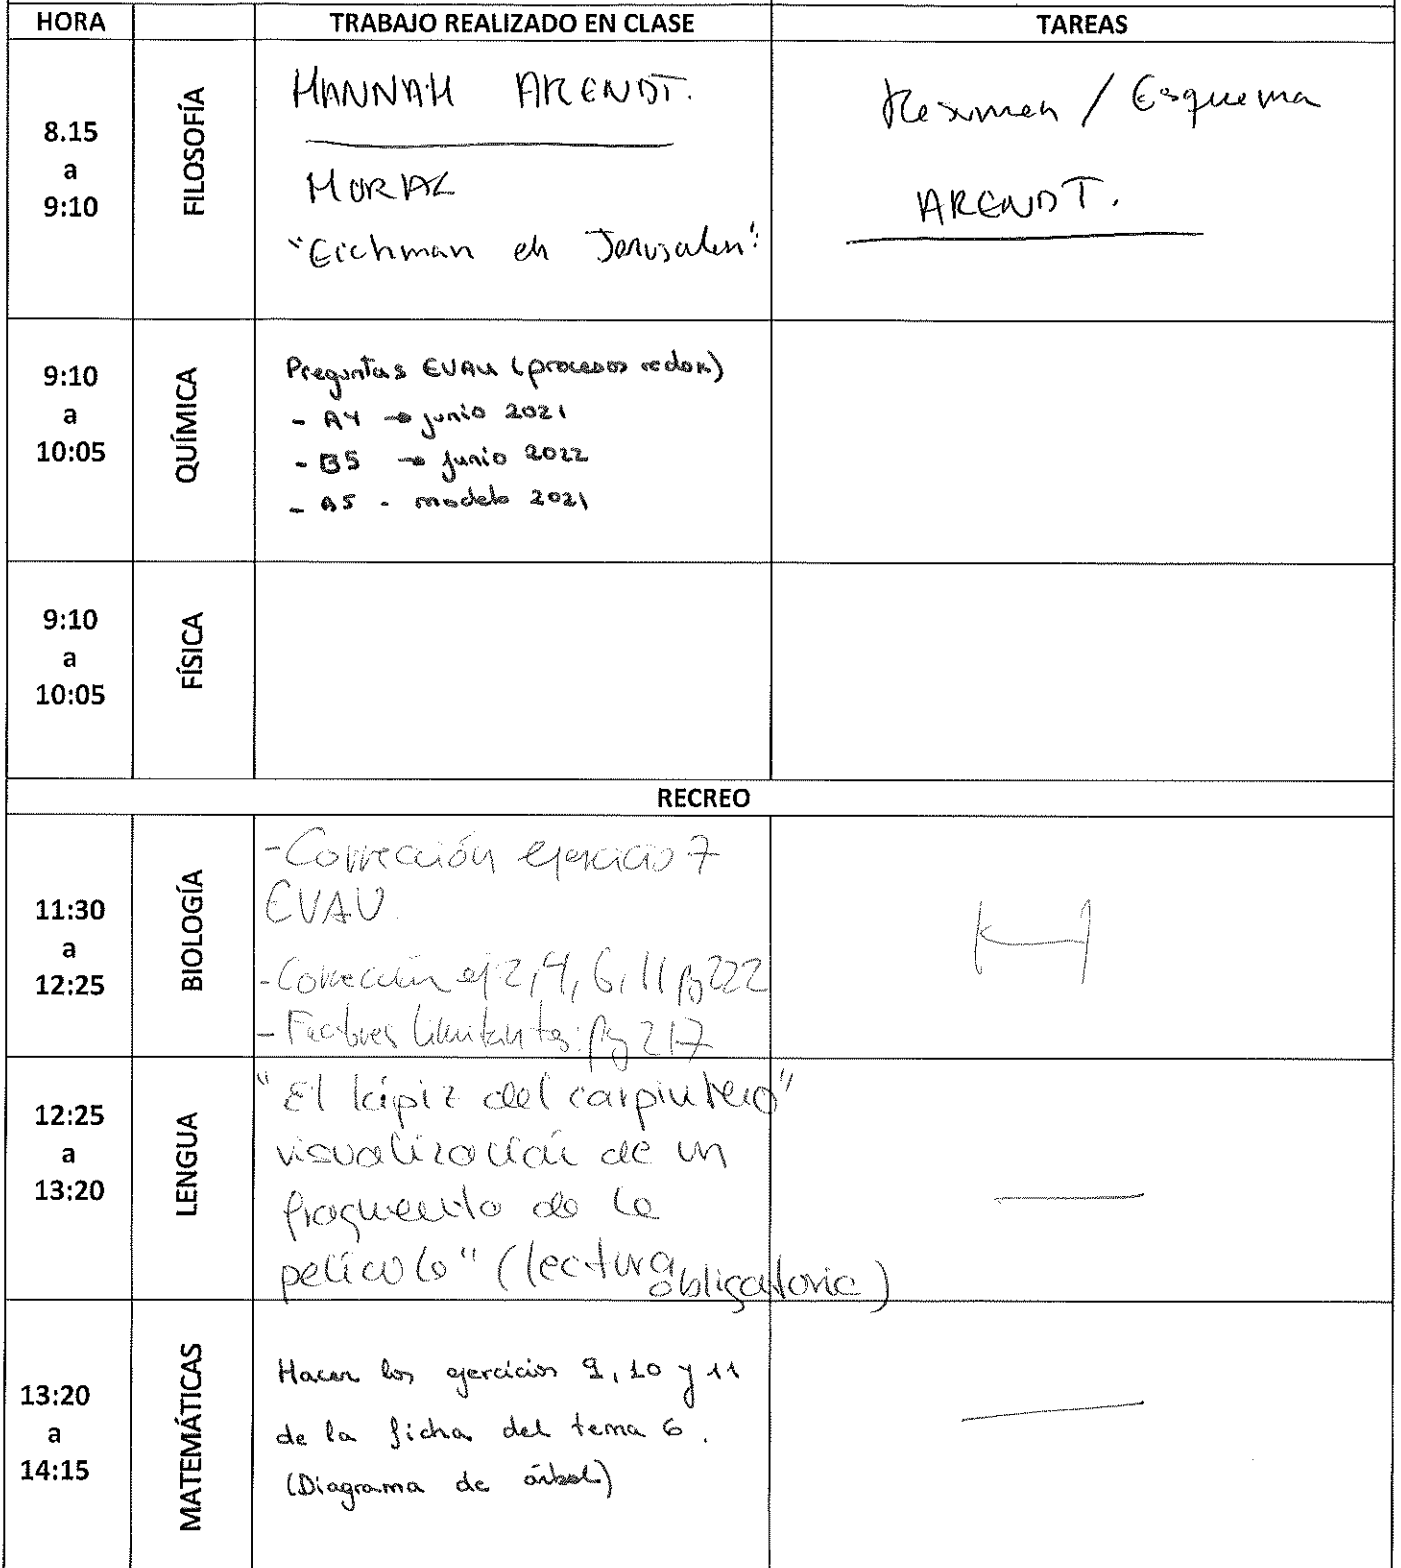 HORA TRABAJO REALIZADO EN CLASE TAREAS
8.15
a
9:10
FILOSOFÍA
HANNAH ARENDT.
MORAL
"Eichman en Jerusalen".
Resumen / Esquema
ARENDT.
9:10
a
10:05
QUÍMICA
Preguntas EVAU (procesos redox)
- A4 → junio 2021
- B5 → junio 2022
- A5 - modelo 2021
9:10
a
10:05
FÍSICA
RECREO
11:30
a
12:25
BIOLOGÍA
-Corrección ejercicio 7
EVAU.
-Corrección ej 2, 4, 6, 11 pg 222
- Factores limitantes: pg 217
12:25
a
13:20
LENGUA
"El lápiz del carpintero"
visualización de un
fragmento de la
película" (lectura
obligatoria)
13:20
a
14:15
MATEMÁTICAS
Hacer los ejercicios 9, 10 y 11
de la ficha del tema 6.
(Diagrama de árbol)